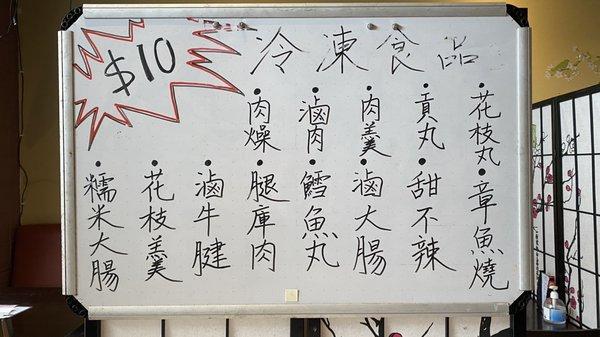 $10
冷凍食品
•花枝丸
•貢丸
•肉羹
•滷肉
•肉燥
•章魚燒
•甜不辣
•滷大腸
•鱈魚丸
•腿庫肉
•滷牛腱
•花枝羹
•糯米大腸